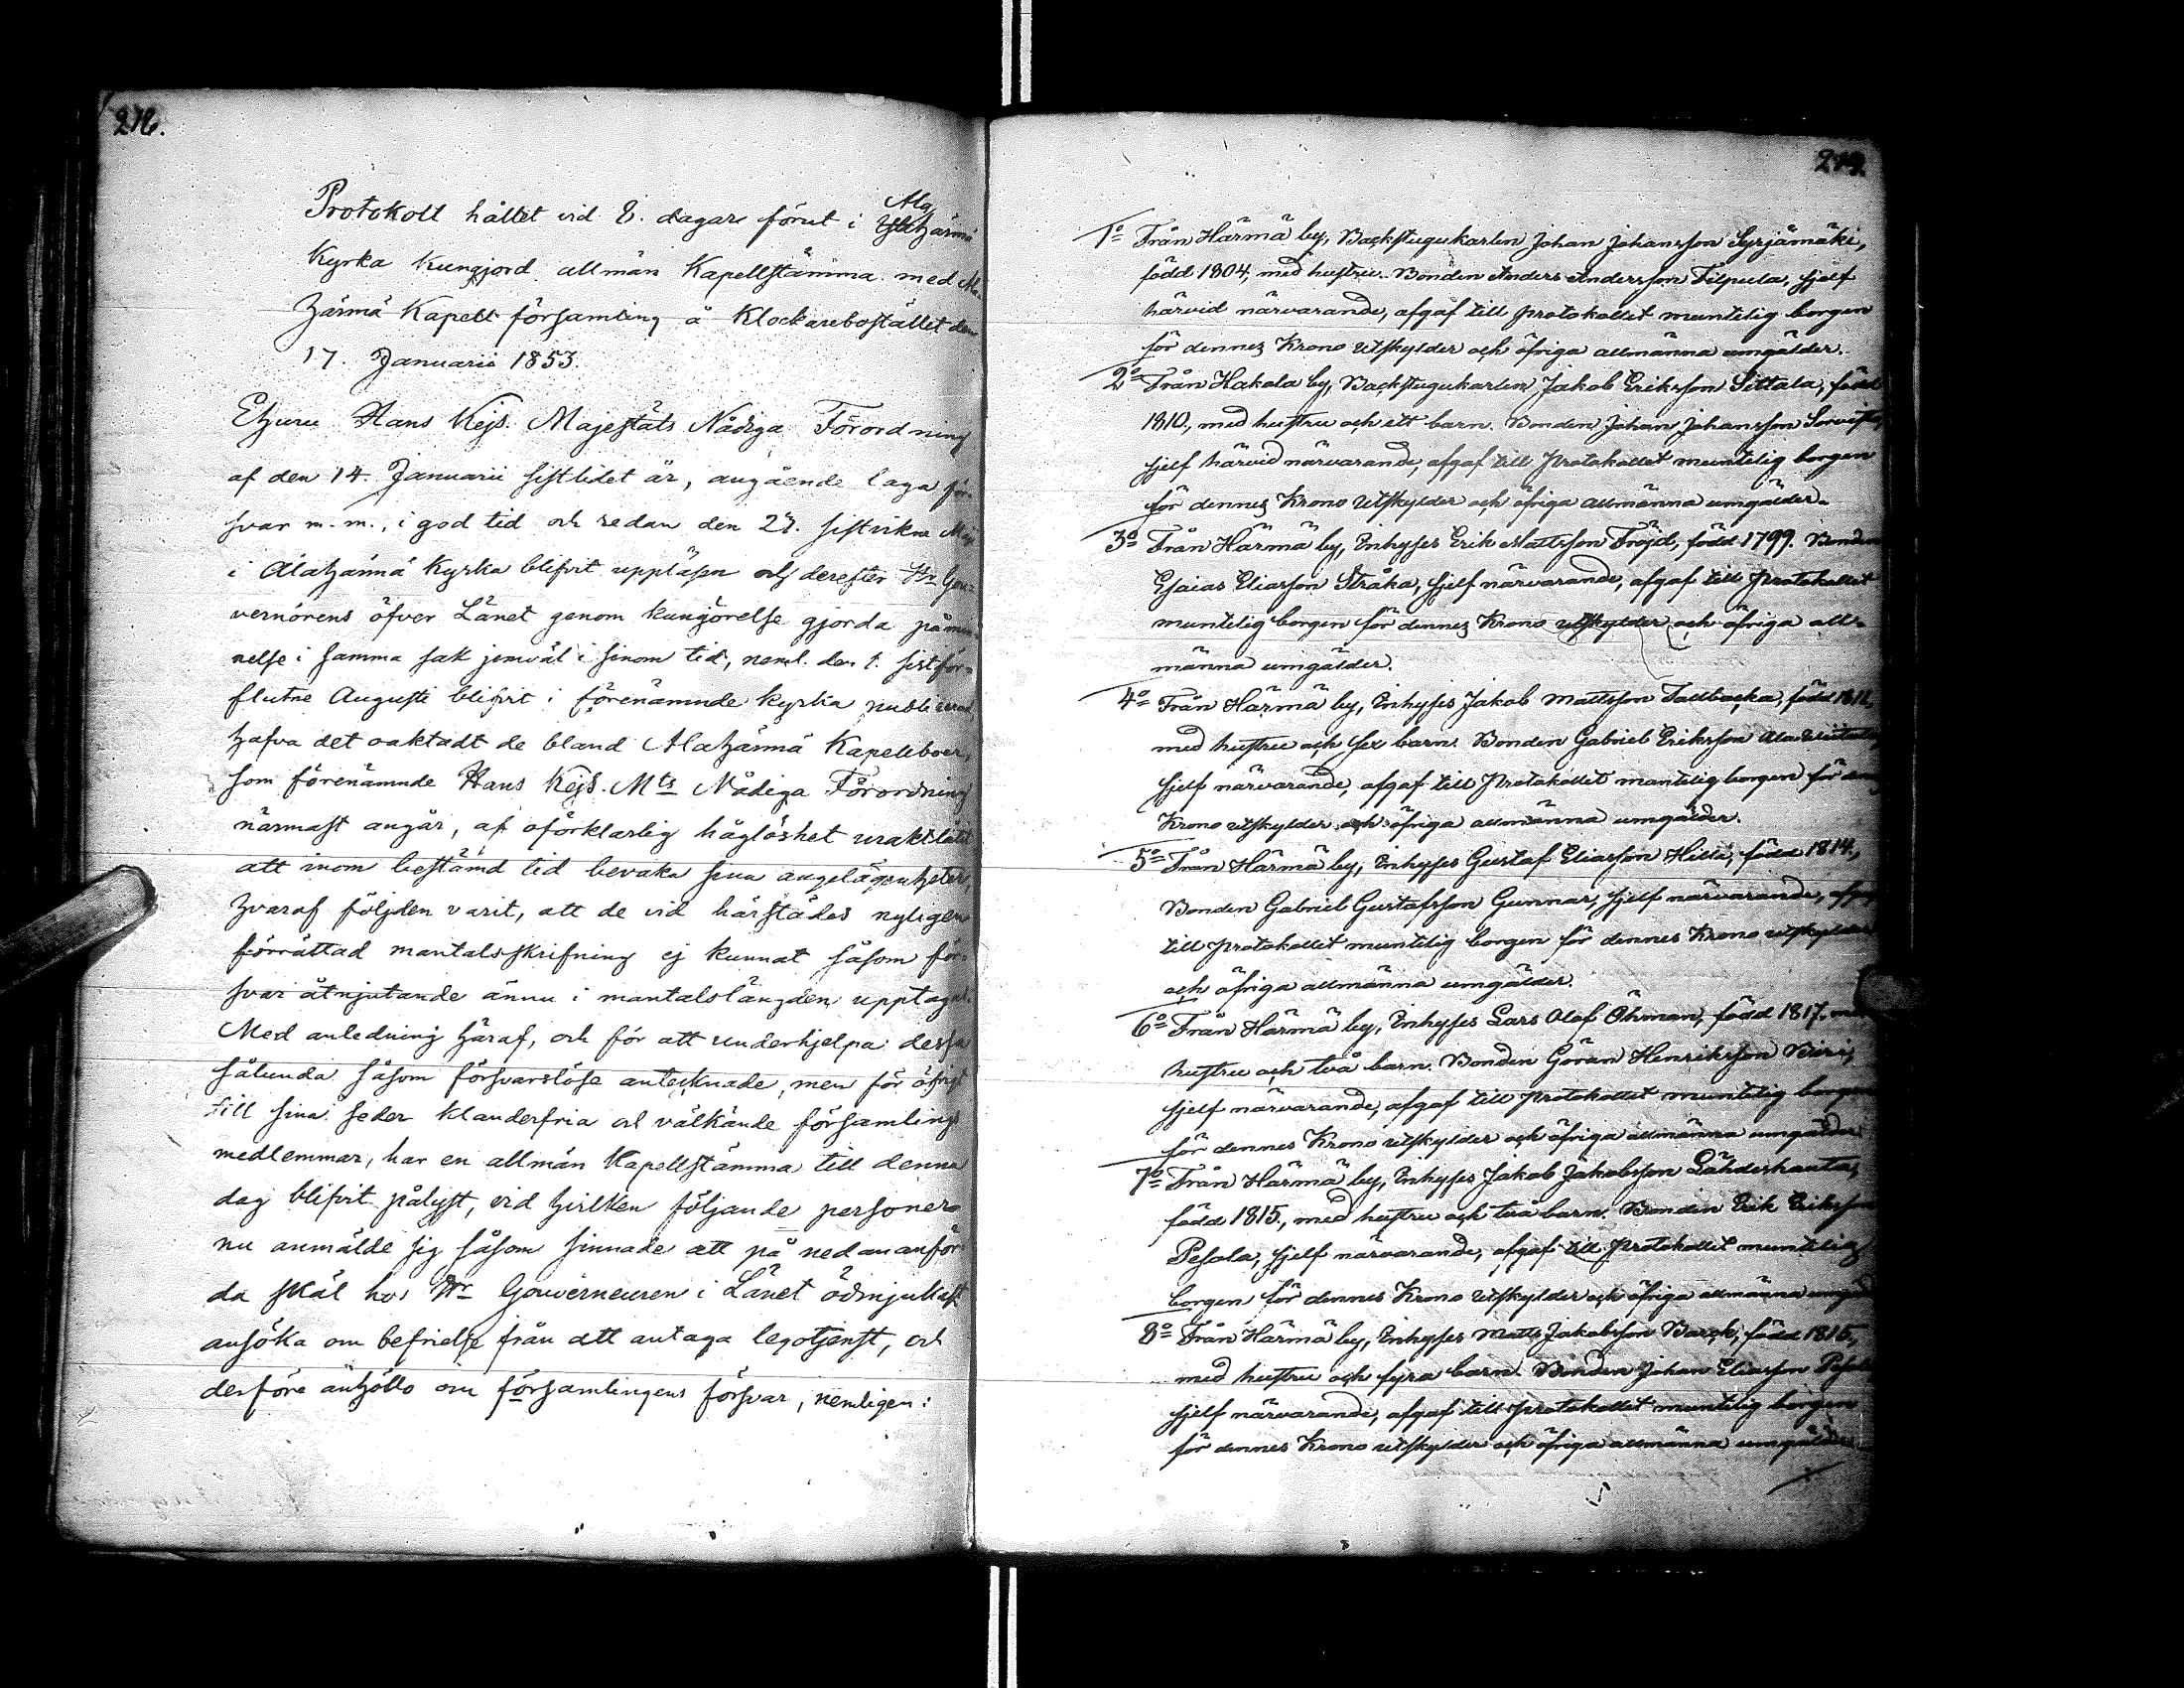 276.
Protokoll hållet vid 8. dagar förut i Ala
Kyrka kungjord allmän Kapellstämma med Ala-
härmä Kapell församling å Klockarebostället den
17. Januarii 1853.
Ehuru Hans Kejs. Majestäts Nådiga Förordning
af den 14. Januarii sistlidet år, angående laga för-
svar m. m., i god tid och redan den 27. sistvikne Maji
i Alahärmä Kyrka blifvit uppläsen och derefter Hr Gou-
vernörens öfver Länet genom kungörelse gjorda påmin-
nelse i samma sak jemväl i sinom tid, neml. den 1. sistför-
flutne Augusti blifvit i förenämnde kyrka publicerad,
hafva det oaktadt de bland Alahärmä Kapellboer,
som förenämnde Hans Kejs. Mts Nådiga Förordning
närmast angår, af oförklarlig håglöshet uraktlåtit
att inom bestämd tid bevaka sina angelägenheter,
hvaraf följden varit, att de vid härstädes nyligen
förrättad mantalsskrifning ej kunnat såsom för-
svar åtnjutande ännu i mantalslängden upptagas.
Med anledning häraf, och för att underhjelpa dessa
sålunda såsom försvarslöse antecknade, men för öfrigt
till sina seder klanderfria och välkände församlings
medlemmar, har en allmän Kapellstämma till denna
dag blifvit pålyst, vid hvilken följande personer
nu anmälde sig såsom sinnade att på nedananför-
da skäl hos Hr Gouverneuren i Länet ödmjukast
ansöka om befrielse från att antaga legotjenst, och
derföre anhöllo om församlingens försvar, nemligen:
1o Från Härmä by, Backstugukarlen Johan Johansson Syrjämäki,
född 1804, med hustru. Bonden Anders Andersson Filpula, sjelf
härvid närvarande, afgaf till protokollet muntelig borgen
för dennes Krono utskylder och öfriga allmänna umgälder.
2o Från Hakola by, Backstugukarlen Jakob Eriksson Sittala, född
1810., med hustru och ett barn. Bonden Johan Johansson
sjelf härvid närvarande, afgaf till Protokollet muntelig borgen
för dennes Krono Utskylder och öfriga allmänna umgälder.
3o Från Härmä by, Inhyses Erik Mattsson Fröjd, född 1799. Bonden
Esaias Eliasson Stråka, sjelf närvarande, afgaf till Protokollet
muntelig borgen för dennes Krono utskylder och öfriga all-
männa umgälder.
4o Från Härmä by, Inhyses Jakob Mattsson Tallbacka, född
med hustru och sex barn. Bonden Gabriel Eriksson
sjelf närvarande, afgaf till Protokollet muntelig borgen för dennes
Krono utskylder och öfriga allmänna umgälder.
5o Från Härmä by, Inhyses Gustaf Eliasson Hilli, född 1814.,
Bonden Gabriel Gustafsson Gunnar, sjelf närvarande, afgaf
till Protokollet muntelig borgen för dennes Krono utskylder
och öfriga allmänna umgälder.
6o Från Härmä by, Inhyses Lars Olof Öhman, född 1817. med
hustru och två barn. Bonden Göran Henriksson
sjelf närvarande, afgaf till Protokollet muntelig borgen
för dennes Krono utskylder och öfriga allmänna umgälder
7o Från Härmä by, Inhyses Jakob Jakobsson Lähdeshauta,
född 1815., med hustru och två barn. Bonden Erik Eriksson
Pesola, sjelf närvarande, afgaf till Protokollet muntelig
borgen för dennes Krono Utskylder och öfriga allmänna umgäld
8o Från Härmä by, Inhyses Matts Jakobsson Barck, född 1815.,
med hustru och fyra barn. Bonden Johan Eliasson Pesola
sjelf närvarande, afgaf till Protokollet muntelig borgen
för dennes Krono utskylder och öfriga allmänna umgälder